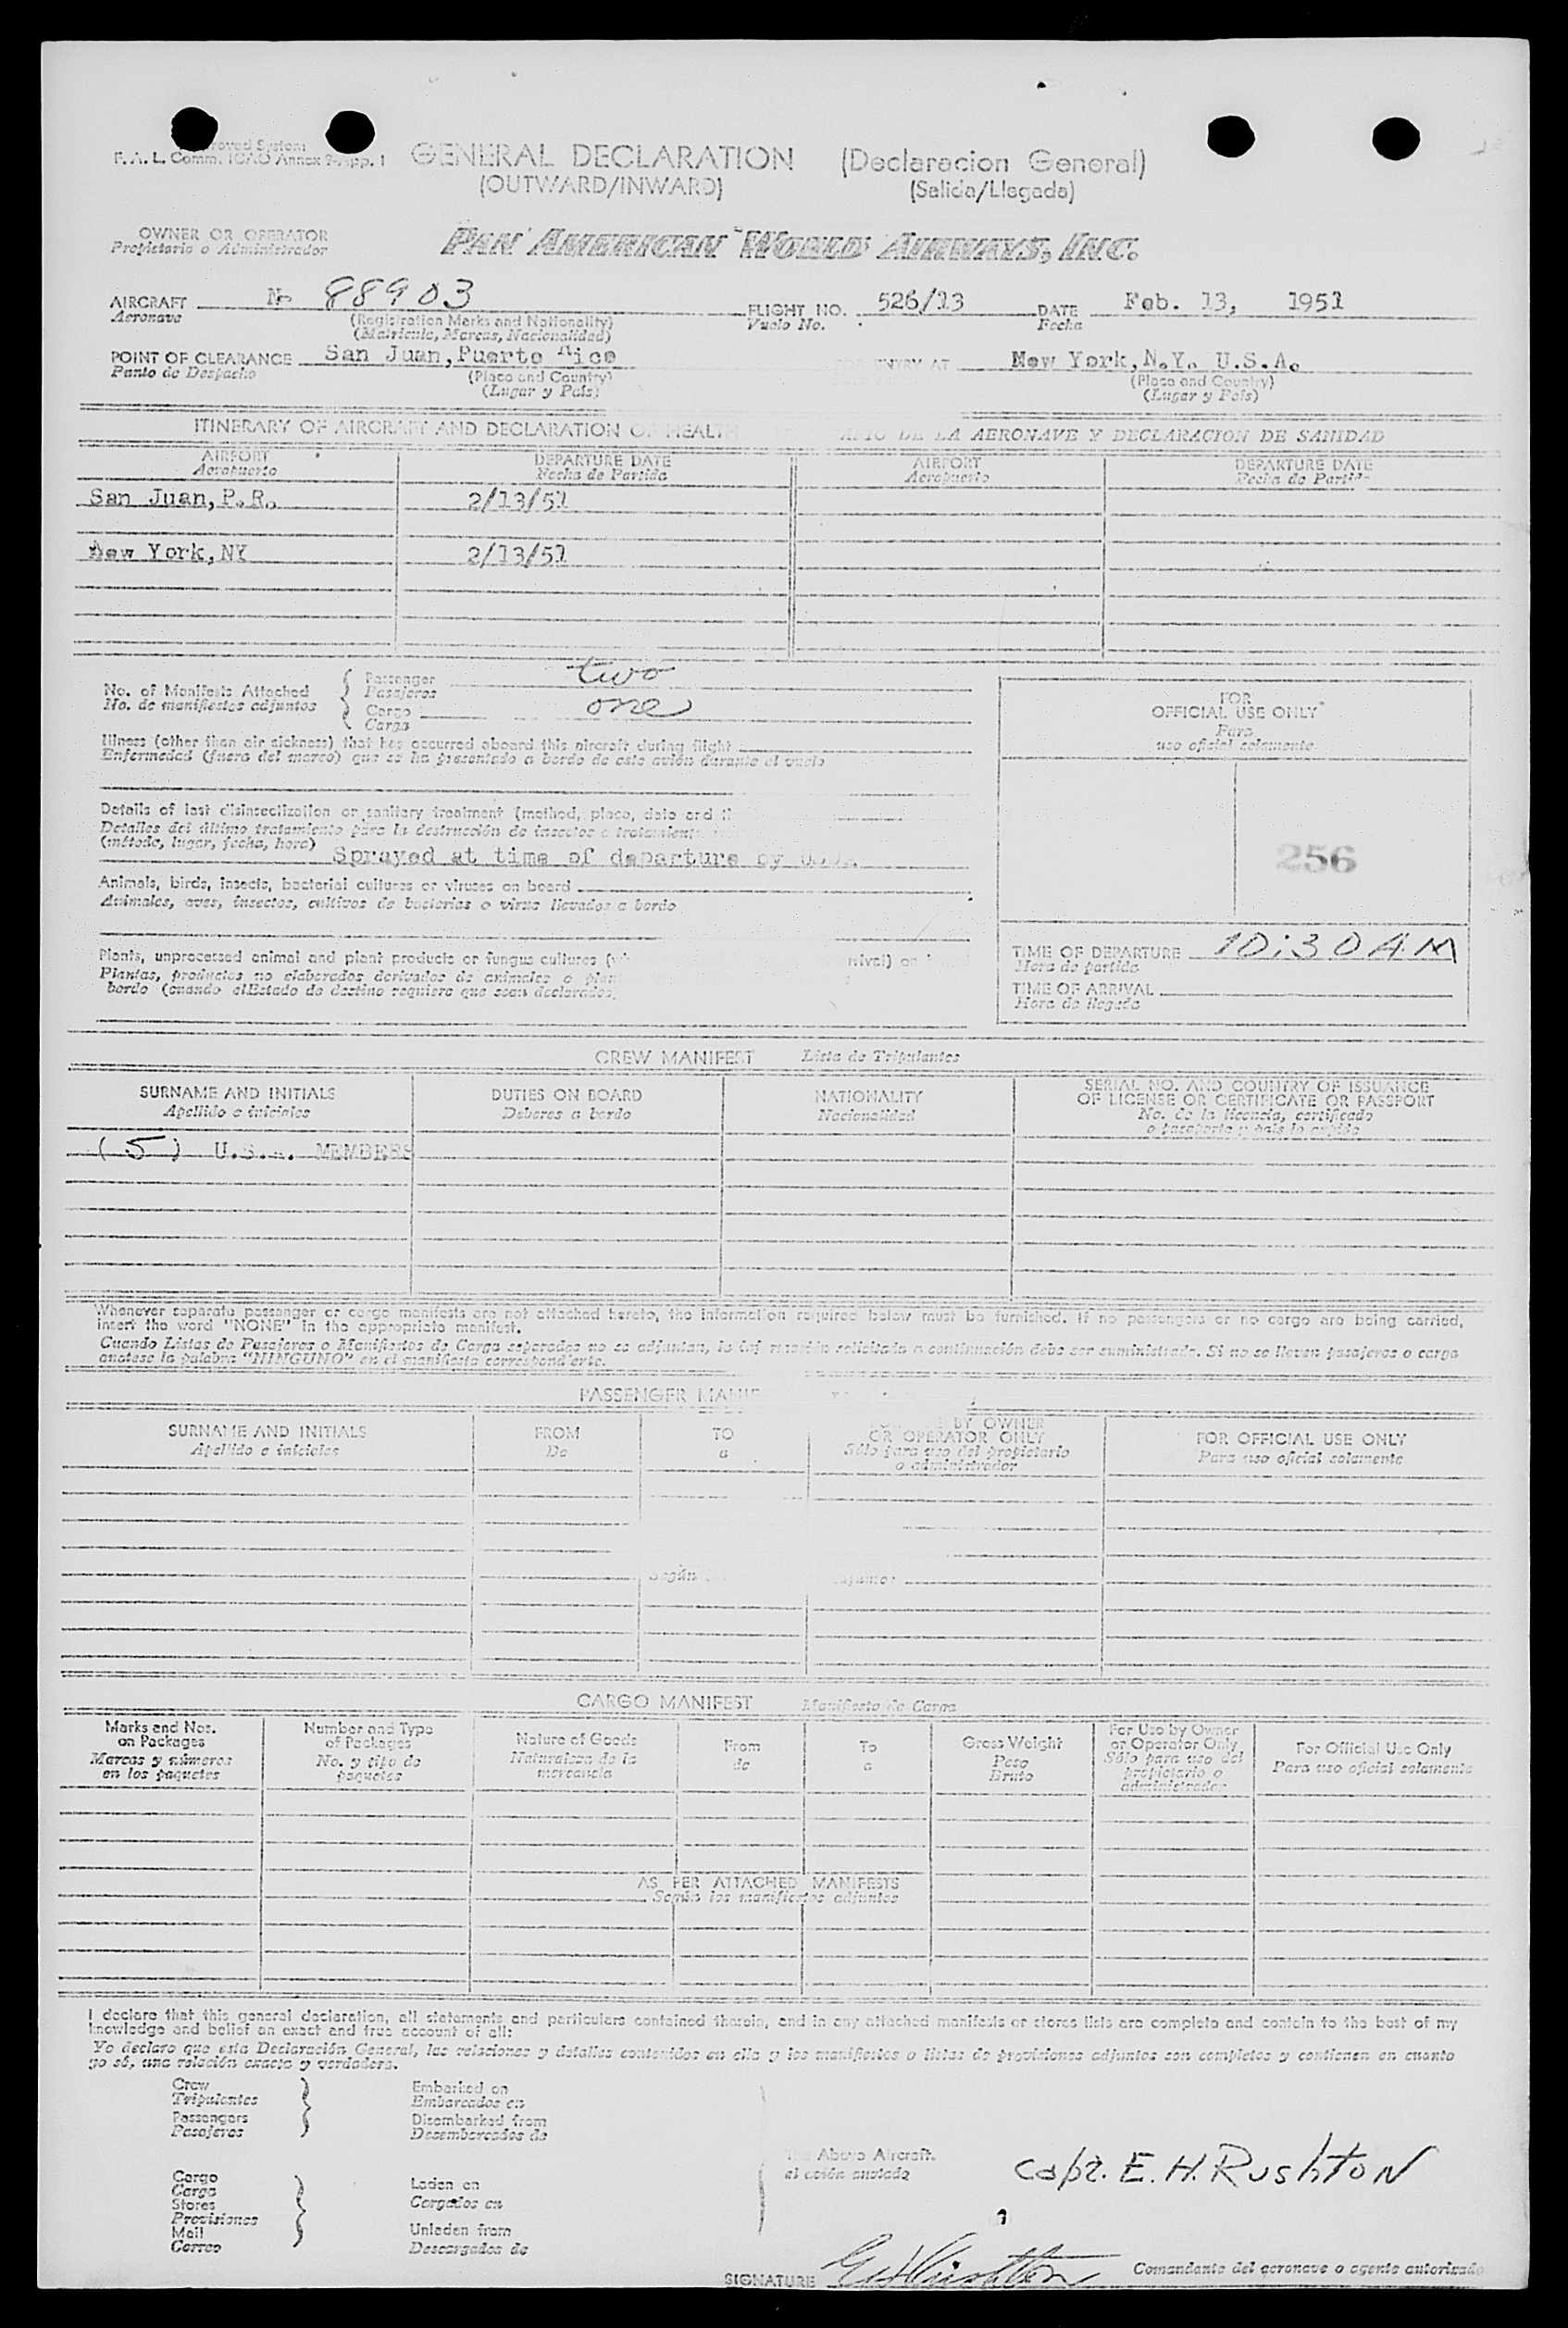 F. A. L. Comm. ICAO Annex 9-App. 1
GENERAL DECLARATION (Declaracion General)
(OUTWARD/INWARD) (Salida/Llegada)
OWNER OR OPERATOR
Propietario o Administrador
PAN AMERICAN WORLD AIRWAYS, INC.
AIRCRAFT No 88903 FLIGHT NO. 526/13 DATE Feb. 13, 1951
Aeronave (Registration Marks and Nationality) Vuelo No. Fecha
(Matricula, Marcas, Nacionalidad)
POINT OF CLEARANCE San Juan, Puerto Rico ENTRY AT New York, N.Y. U.S.A.
Punto de Despacho (Place and Country) (Place and Country)
(Lugar y País) (Lugar y País)
ITINERARY OF AIRCRAFT AND DECLARATION OF HEALTH DE LA AERONAVE Y DECLARACION DE SANIDAD
AIRPORT DEPARTURE DATE AIRPORT DEPARTURE DATE
Aeropuerto Fecha de Partida Aeropuerto Fecha de Partida
San Juan, P.R. 2/13/51
New York, NY 2/13/51
No. of Manifests Attached
No. de manifiestos adjuntos
Passenger two
Pasajeros
Cargo one
Carga
FOR
OFFICIAL USE ONLY
Para
uso oficial solamente
Illness (other than air sickness) that has occurred aboard this aircraft during flight
Enfermedad (fuera del mareo) que se ha presentado a bordo de este avión durante el vuelo
Details of last disinsectization or sanitary treatment (method, place, date and
Detalles del último tratamiento para la destrucción de insectos o tratamiento
(método, lugar, fecha, hora) Sprayed at time of departure by
256
Animals, birds, insects, bacterial cultures or viruses on board
Animales, aves, insectos, cultivos de bacterias o virus llevados a bordo
Plants, unprocessed animal and plant products or fungus cultures
Plantas, productos no elaborados derivados de animales o
bordo (cuando el Estado de destino requiera que sean declarados
TIME OF DEPARTURE 10:30 AM
Hora de partida
TIME OF ARRIVAL
Hora de llegada
CREW MANIFEST Lista de Tripulantes
SURNAME AND INITIALS DUTIES ON BOARD NATIONALITY SERIAL NO. AND COUNTRY OF ISSUANCE
OF LICENSE OR CERTIFICATE OR PASSPORT
Apellido e iniciales Deberes a bordo Nacionalidad No. de la licencia, certificado
o pasaporte y país lo expide
(5) U.S.A. MEMBERS
Whenever separate passenger or cargo manifests are not attached hereto, the information required below must be furnished. If no passengers or no cargo are being carried,
insert the word "NONE" in the appropriate manifest.
Cuando Listas de Pasajeros o Manifiestos de Carga separados no se adjuntan, la información solicitada a continuación debe ser suministrada. Si no se llevan pasajeros o carga
anótese la palabra "NINGUNO" en el manifiesto correspondiente.
PASSENGER
SURNAME AND INITIALS FROM TO BY OWNER
OR OPERATOR ONLY FOR OFFICIAL USE ONLY
Apellido e iniciales De a Sólo para uso del propietario
o administrador Para uso oficial solamente
Según
CARGO MANIFEST Manifiesto de Carga
Marks and Nos.
on Packages
Marcas y números
en los paquetes
Number and Type
of Packages
No. y tipo de
paquetes
Nature of Goods
Naturaleza de la
mercancía
From
de
To
a
Gross Weight
Peso
Bruto
For Use by Owner
or Operator Only
Sólo para uso del
propietario o
administrador
For Official Use Only
Para uso oficial solamente
AS PER ATTACHED MANIFESTS
Según los manifiestos adjuntos
I declare that this general declaration, all statements and particulars contained therein, and in any attached manifests or stores lists are complete and contain to the best of my
knowledge and belief an exact and true account of all:
Yo declaro que esta Declaración General, las relaciones y detalles contenidos en ella y los manifiestos o listas de provisiones adjuntos son completos y contienen en cuanto
yo sé, una relación exacta y verdadera.
Crew
Tripulantes
Passengers
Pasajeros
Embarked on
Embarcados en
Disembarked from
Desembarcados de
Cargo
Carga
Stores
Provisiones
Mail
Correo
Laden on
Cargados en
Unladen from
Descargados de
The Above Aircraft.
el avión anotado
Capt. E. H. Rushton
SIGNATURE EHRushton Comandante del aeronave o agente autorizado